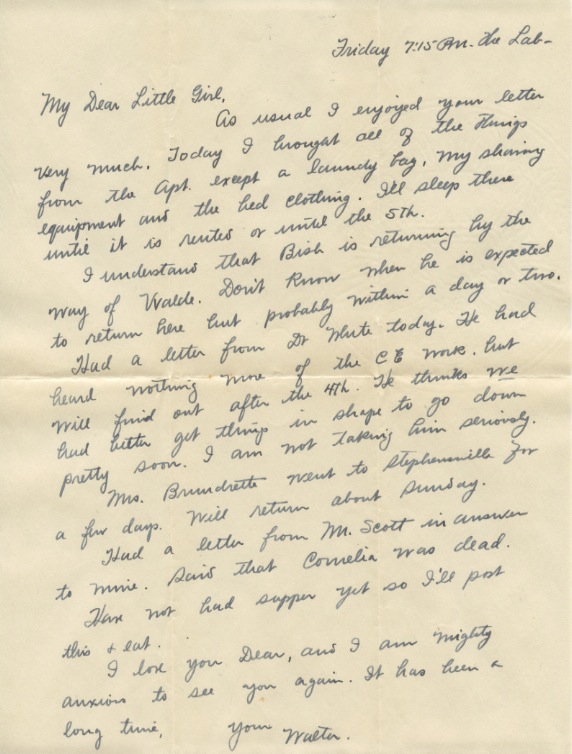 Friday 7:15 P.M. the Lab-
My Dear Little Girl,
As usual I enjoyed your letter
very much. Today I brought all of the things
from the Apt. except a laundry bag, my shaving
equipment and the bed clothing. I'll sleep there
until it is rented or until the 5th.
I understand that Bish is returning by the
way of Uvalde. Don't know when he is expected
to return here but probably within a day or two.
Had a letter from Dr White today. He had
heard nothing more of the C E work. but
will find out after the 4th. He thinks we
had better get things in shape to go down
pretty soon. I am not taking him seriously.
Mrs. Brundrette went to Stephensville for
a few days. Will return about Sunday.
Had a letter from Mr. Scott in answer
to mine. Said that Cornelia was dead.
Have not had supper yet so I'll post
this & eat.
I love you Dear, and I am mighty
anxious to see you again. It has been a
long time,
Your Walter.